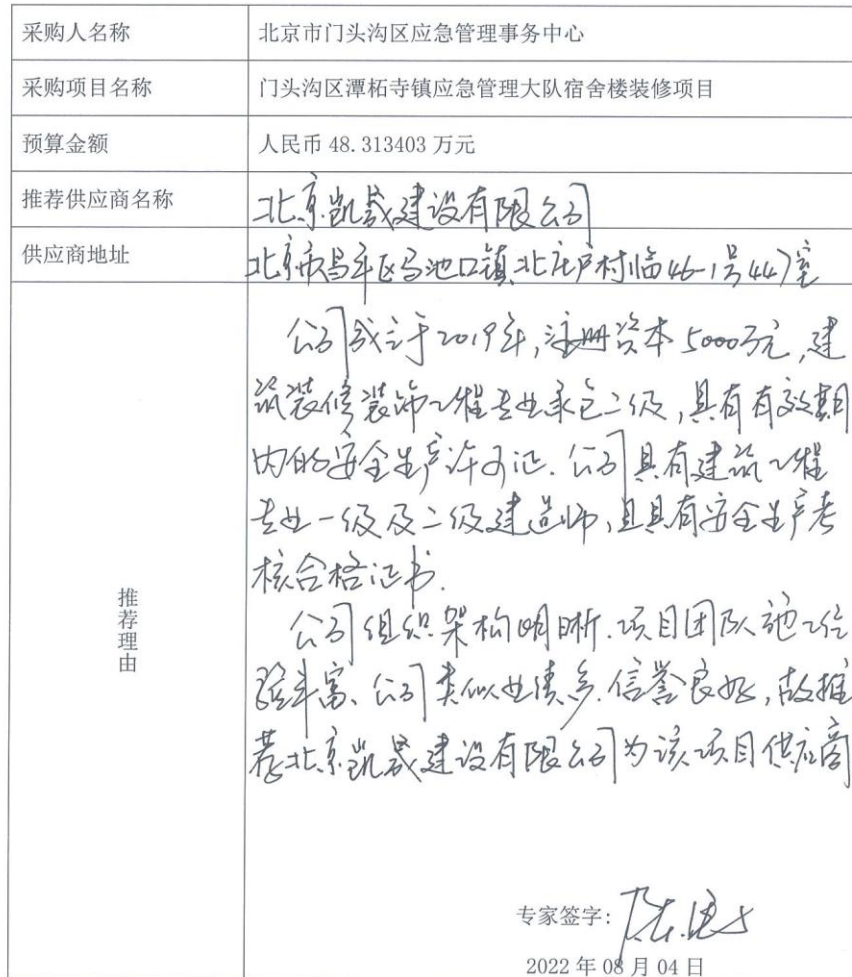 采购人名称 北京市门头沟区应急管理事务中心
采购项目名称 门头沟区潭柘寺镇应急管理大队宿舍楼装修项目
预算金额 人民币 48.313403 万元
推荐供应商名称 北京凯晟建设有限公司
供应商地址 北京市昌平区马池口镇北庄户村临46-1号447室
推荐理由
公司成立于2019年,注册资本5000万元,建
筑装修装饰工程专业承包二级,具有有效期
内的安全生产许可证.公司具有建筑工程
专业一级及二级建造师,且具有安全生产考
核合格证书.
公司组织架构明晰.项目团队施工经
验丰富、公司类似业绩多.信誉良好,故推
荐北京凯晟建设有限公司为该项目供应商
专家签字:
2022 年 08 月 04 日